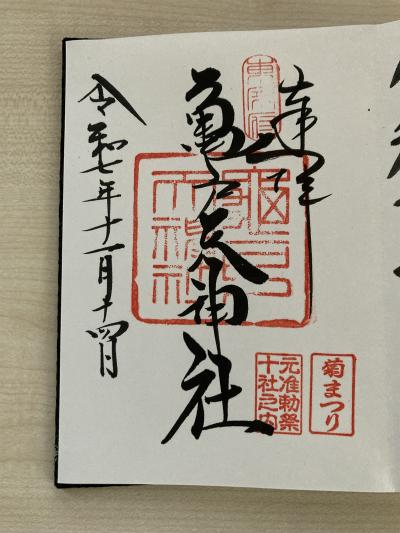 奉拝
亀戸天神社
令和七年十一月十四日
東宰府
元准勅祭
十社之内
菊まつり